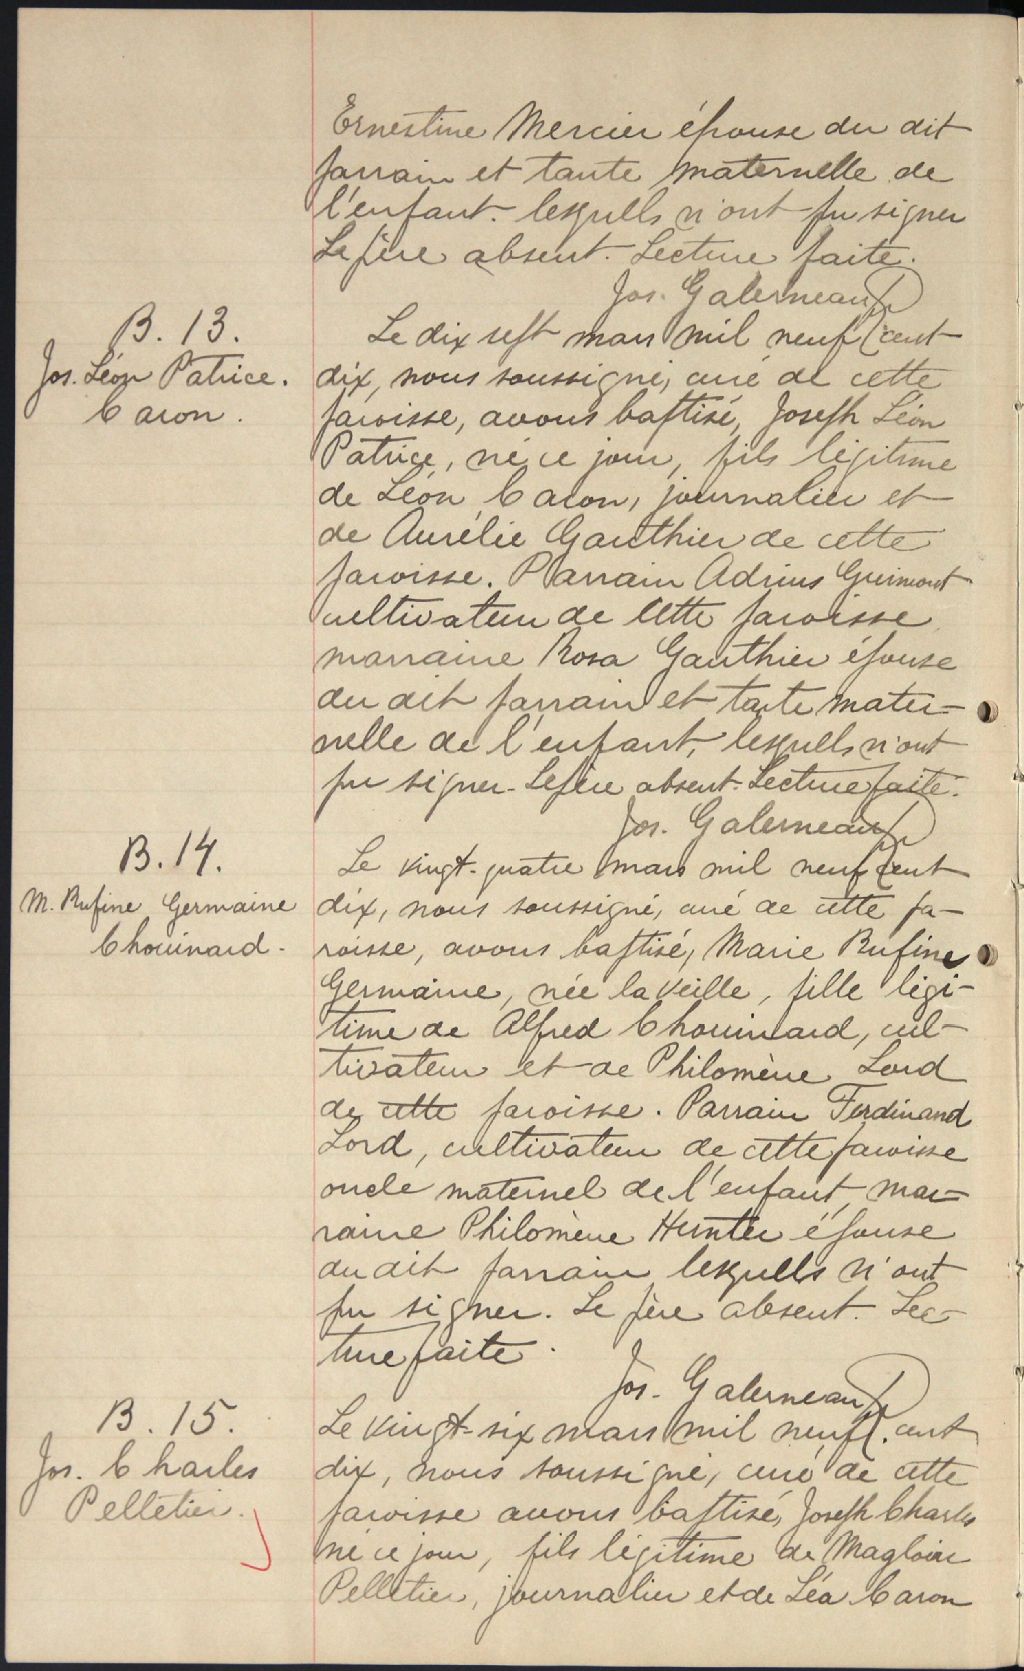 Ernestine Mercier épouse du dit
parrain et tante maternelle de
l'enfant. lesquells n'ont pu signer
Le père absent. Lecture faite.
Jos. Galerneau
B. 13.
Jos. Léon Patrice.
Caron.
Le dix sept mars mil neuf cent
dix, nous soussigné, curé de cette
paroisse, avons baptisé, Joseph Léon
Patrice, né ce jour, fils légitime
de Léon Caron, journalier et
de Aurélie Gauthier de cette
paroisse. Parrain Adrius Guimont
cultivateur de cette paroisse
marraine Rosa Gauthier épouse
du dit parrain et tante mater=
nelle de l'enfant, lesquells n'ont
pu signer. Le père absent. Lecture faite.
Jos. Galerneau
B. 14.
M. Rufine Germaine
Chouinard.
Le vingt-quatre mars mil neuf cent
dix, nous soussigné, curé de cette pa-
roisse, avons baptisé, Marie Rufine
Germaine, née la veille, fille légi-
time de Alfred Chouinard, cul-
tivateur et de Philomène Lord
de cette paroisse. Parrain Ferdinand
Lord, cultivateur de cette paroisse
oncle maternel de l'enfant, mar=
raine Philomène Hunter épouse
du dit parrain lesquells n'ont
pu signer. Le père absent. Lec-
ture faite.
Jos. Galerneau
B. 15.
Jos. Charles
Pelletier.
Le vingt-six mars mil neuf cent
dix, nous soussigné, curé de cette
paroisse avons baptisé, Joseph Charles
né ce jour, fils légitime de Magloire
Pelletier, journalier et de Léa Caron